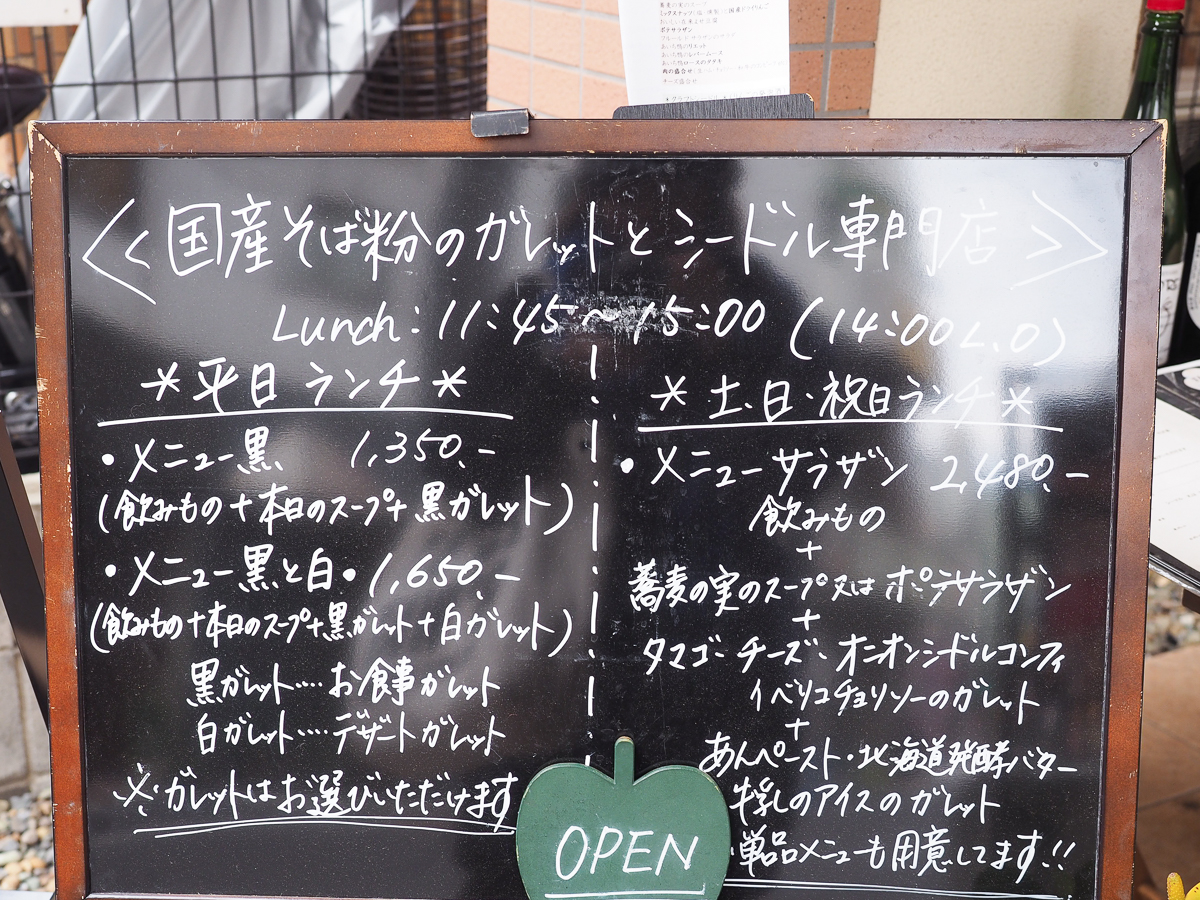 ボナサラザン
チーズ盛合せ
≪国産そば粉のガレットとシードル専門店≫
Lunch：11:45～15:00 (14:00 L.O)
＊平日ランチ＊
・メニュー黒 1,350.-
(飲みもの＋本日のスープ＋黒ガレット)
・メニュー黒と白・1,650.-
(飲みもの＋本日のスープ＋黒ガレット＋白ガレット)
黒ガレット‥‥お食事ガレット
白ガレット‥‥デザートガレット
※ガレットはお選びいただけます
＊土・日・祝日ランチ＊
・メニューサラザン 2,480.-
飲みもの
＋
蕎麦の実のスープ又はポテサラザン
＋
タマゴ・チーズ・オニオンシードルコンフィ
イベリコチョリソーのガレット
＋
あんペースト・北海道発酵バター
牛乳のアイスのガレット
単品メニューも用意してます!!
OPEN